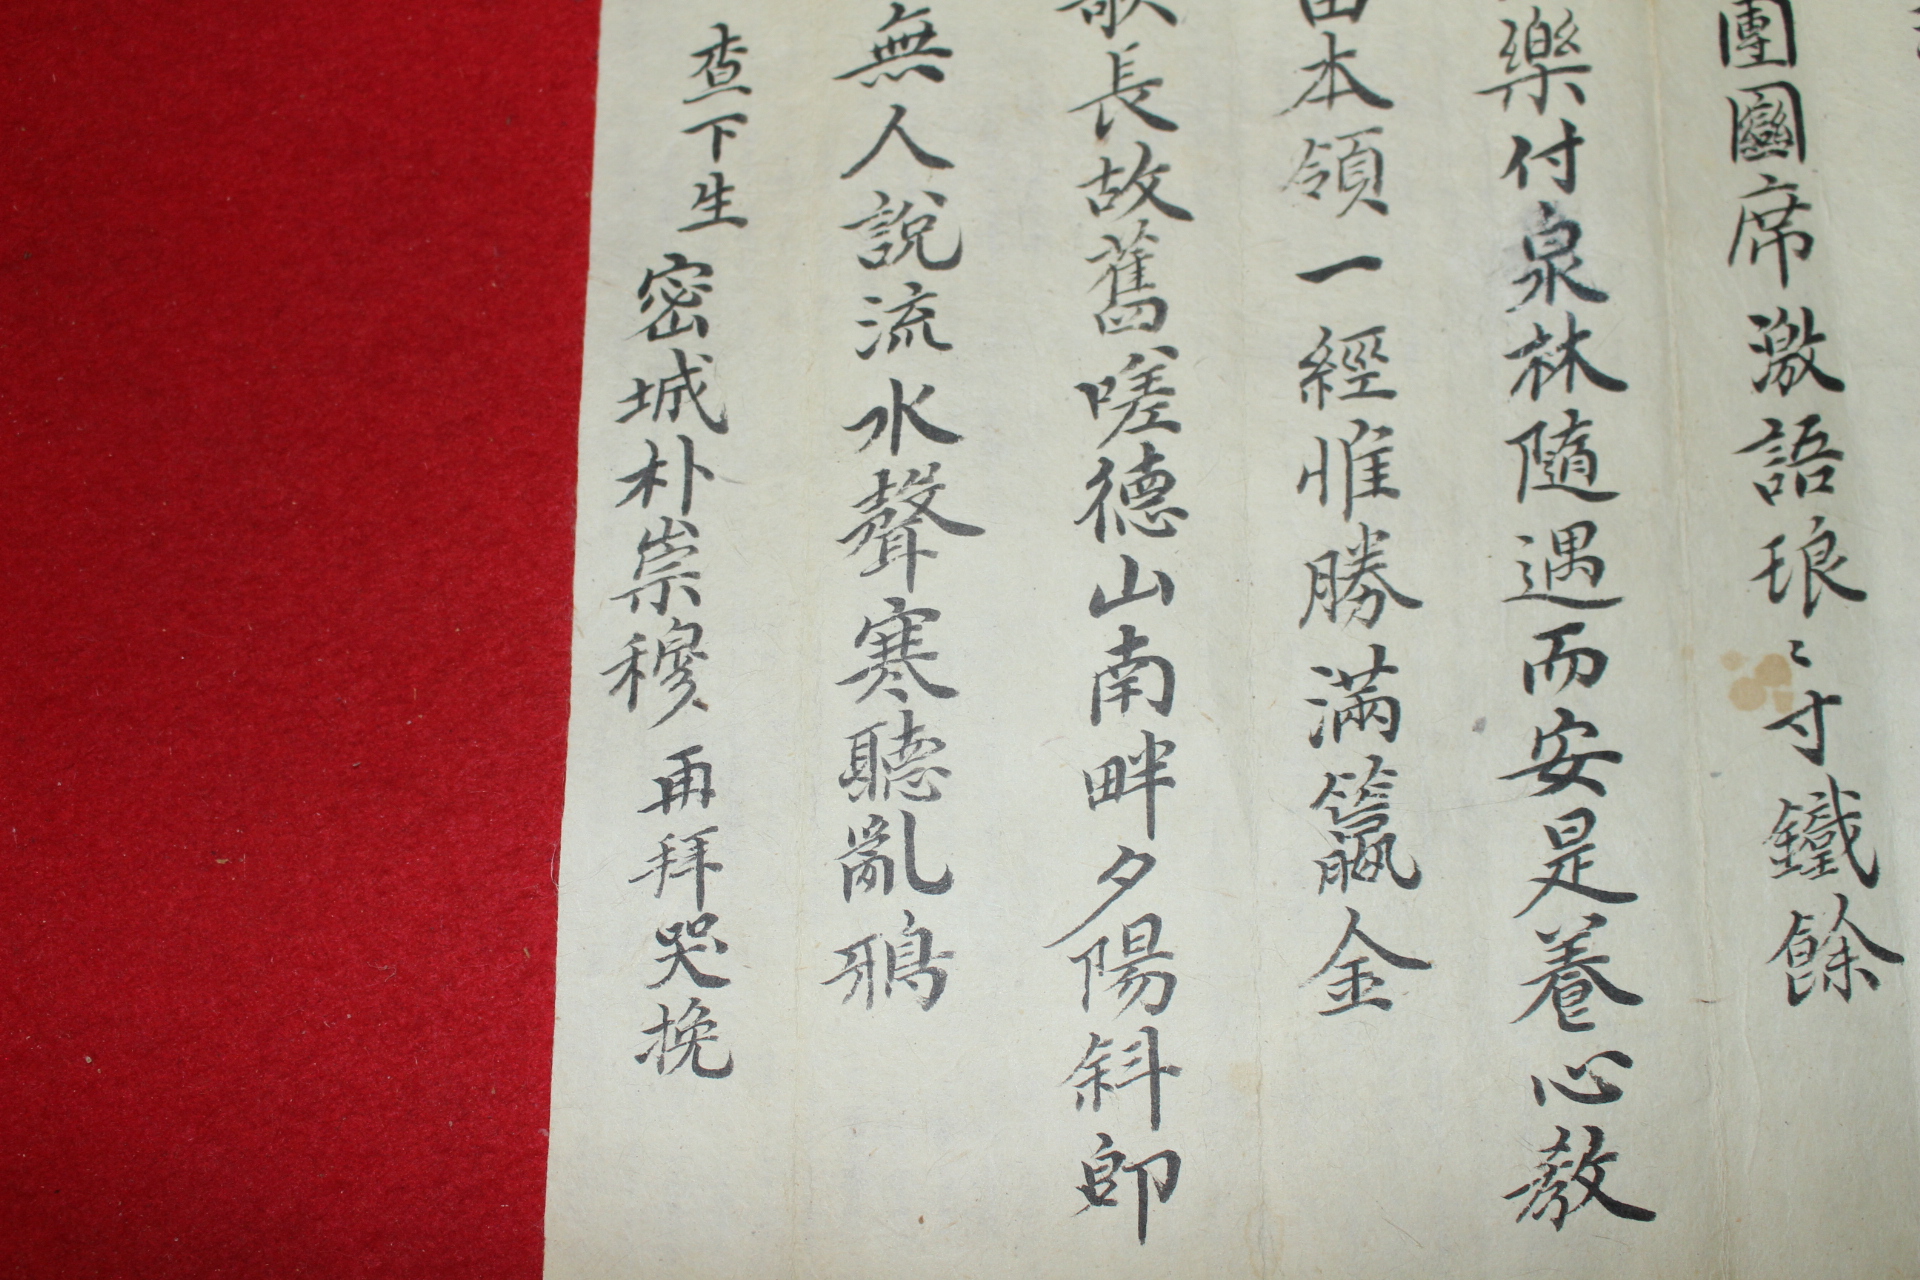 團圝席激語琅〻寸鐵餘
樂付泉林隨遇而安是養心教
本領一經惟勝滿籯金
歌長故舊嗟德山南畔夕陽斜即
無人說流水聲寒聽亂鴉
査下生 密城朴崇穆 再拜哭挽